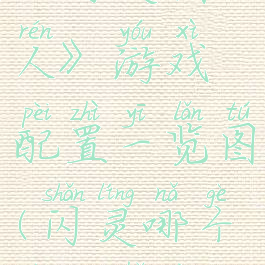 rén yóu xì
人》游戏
pèi zhì yī lǎn tú
配置一览图
shǎn líng nǎ gè
(闪灵哪个